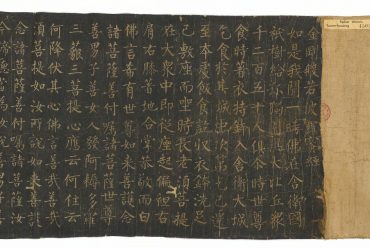 金剛般若波羅蜜經
如是我聞一時佛在舍衛國
祇樹給孤獨園與大比丘衆
千二百五十人俱尒時世尊
食時著衣持鉢入舍衛大城
乞食於其城中次第乞已還
至本處飯食訖收衣鉢洗足
已敷座而坐時長老須菩提
在大衆中即從座起偏袒右
肩右膝著地合掌恭敬而白
佛言希有世尊如來善護念
諸菩薩善付囑諸菩薩世尊
善男子善女人發阿耨多羅
三藐三菩提心應云何住云
何降伏其心佛言善哉善哉
須菩提如汝所說如來善護
念諸菩薩善付囑諸菩薩汝
Pelliot chinois
Touen-houang